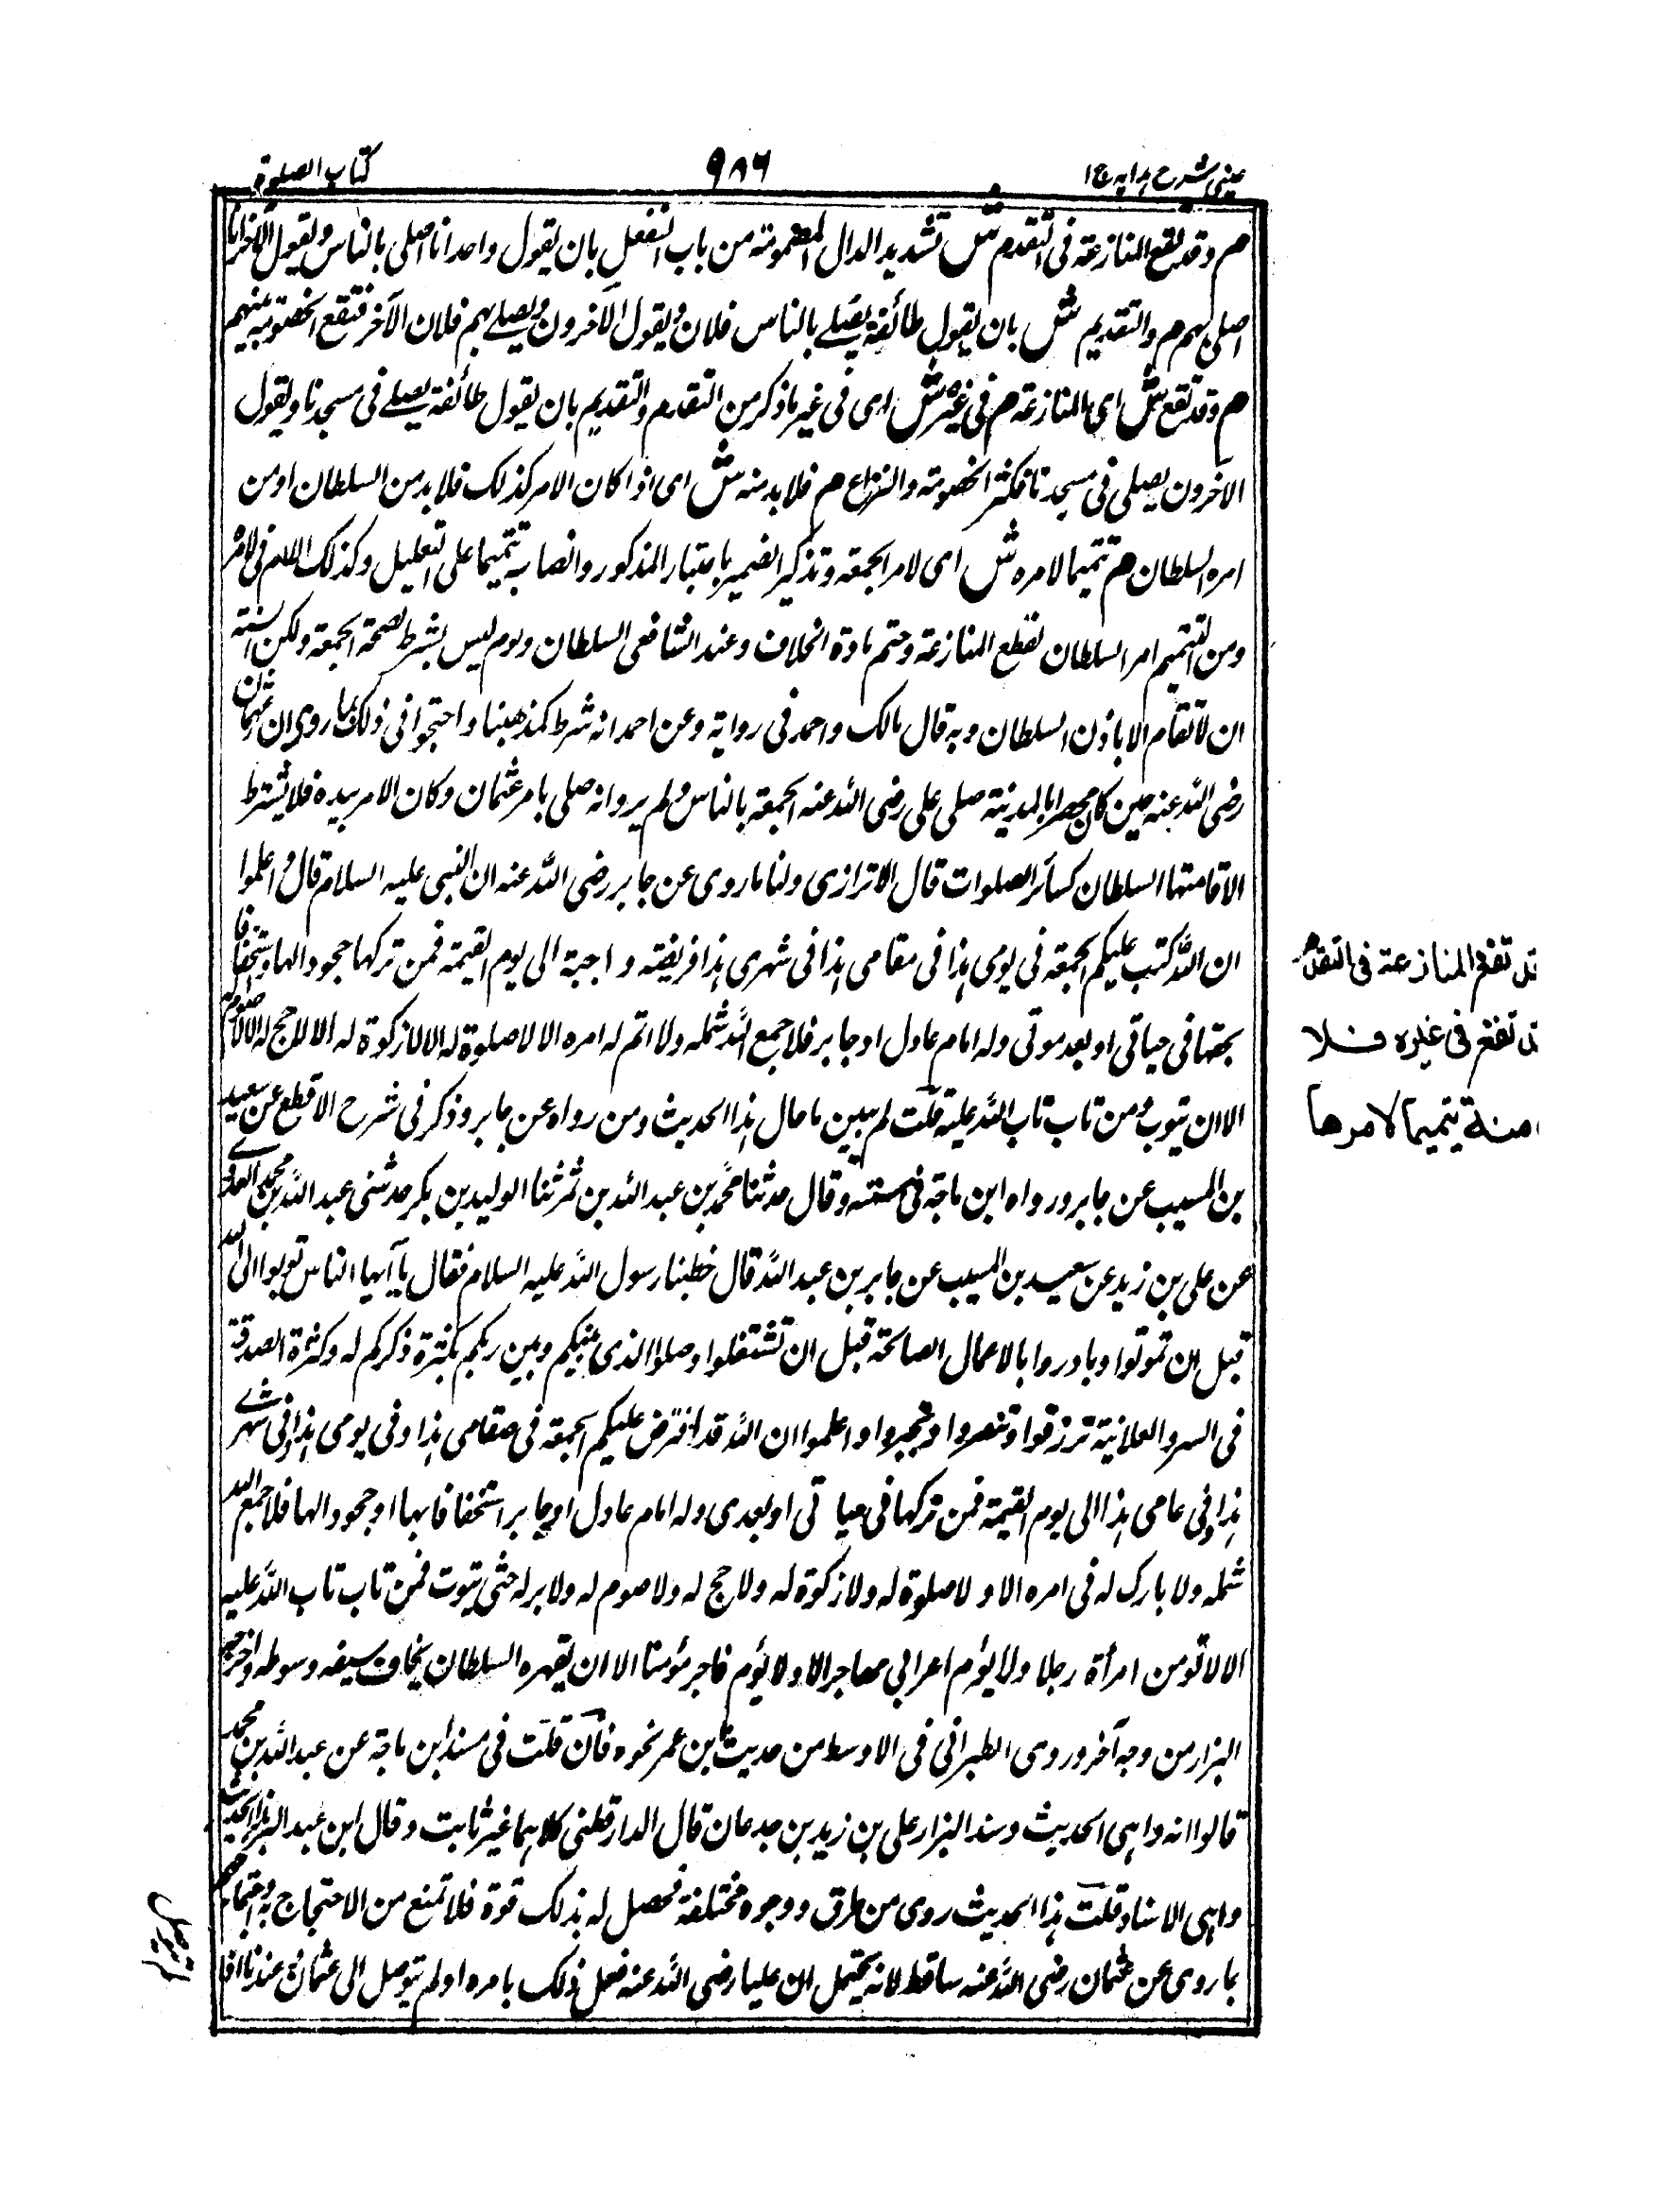 عينى شرح هدايه ج ١
٩٨٦
كتاب الصلوة
م وقد تقع المنازعة فى التقدم ش تشديد الدال المضمومة من باب التفعل بان يقول واحد انا اصلى بالناس ويقول الآخر انا
اصلى بهم م والتقديم ش بان يقول طائفة يصلے بالناس فلان ويقول الآخرون ويصلے بهم فلان الآخر فتقع الخصومة بينهم
م وقد تقع ش اى المنازعة م فى غيره ش اى فى غير ما ذكر من التقدم والتقديم بان يقول طائفة يصلے فى مسجدنا ويقول
الآخرون يصلى فى مسجدنا فكثر الخصومة والنزاع م فلا بد منه ش اى اذا كان الامر كذلك فلا بد من السلطان او من
امره السلطان م تتميما لامره ش اى لامر الجمعة وتذكير الضمير باعتبار المذكور وانتصابه تتميما على التعليل وكذلك اللام فى لامره
ومن التتميم امر السلطان لقطع المنازعة وحتم مادة الخلاف وعند الشافعى السلطان ليس بشرط لصحة الجمعة ولكن السنة
ان لا تقام الا باذن السلطان وبه قال مالك واحمد فى رواية وعن احمد انه شرط كمذهبنا واحتجوا فى ذلك بما روى ان عثمان
رضى الله عنه حين كان محصرا بالمدينة صلى على رضى الله عنه الجمعة بالناس ولم يرو انه صلى بامر عثمان وكان الامر بيده فلا يشترط
الاقامتها السلطان كسائر الصلوات قال الاترازى ولنا ما روى عن جابر رضى الله عنه ان النبى عليه السلام قال واعلموا
ان الله كتب عليكم الجمعة فى يومى هذا فى مقامى هذا فى شهرى هذا فريضة واجبة الى يوم القيمة فمن تركها جحودا لها واستخفافا
بحقها فى حياتى او بعد موتى وله امام عادل او جابر فلا جمع الله شمله ولا اتم له امره الا لا صلوة له الا لا زكوة له الا لا حج له الا لا صوم له
الا ان يتوب ومن تاب تاب الله عليه قلت لم يبين ما حال هذا الحديث ومن رواه عن جابر وذكر فى شرح الاقطع عن سعيد
بن المسيب عن جابر ورواه ابن ماجة فى سننه وقال حدثنا محمد بن عبد الله بن نمر ثنا الوليد بن بكر حدثنى عبد الله بن محمد العدوے
عن على بن زيد عن سعيد بن المسيب عن جابر بن عبد الله قال خطبنا رسول الله عليه السلام فقال يا ايها الناس توبوا الى الله
قبل ان تموتوا وبادروا بالاعمال الصالحة قبل ان تشتغلوا وصلوا الذى بينكم وبين ربكم بكثرة ذكركم له وكثرة الصدقة
فى السر والعلانية ترزقوا وتنصروا وتجبروا واعلموا ان الله قد افترض عليكم الجمعة فى مقامى هذا وفى يومى هذا فى شهرے
هذا وفى عامى هذا الى يوم القيمة فمن تركها فى حياتى او بعدى وله امام عادل او جابر استخفافا بها او جحودا لها فلا جمع الله
شمله ولا بارك له فى امره الا ولا صلوة له ولا زكوة له ولا حج له ولا صوم له ولا بر له حتى يتوب فمن تاب تاب الله عليه
الا لا تومن امرأة رجلا ولا يؤم اعرابى مهاجرا الا ولا يؤم فاجر مؤمنا الا ان يقهره السلطان يخاف سيفه وسوطه واخرجه
البزار من وجه آخر وروى الطبرانى فى الاوسط من حديث ابن عمر نحوه فان قلت فى مسند ابن ماجة عن عبد الله بن محمد
قالوا انه واهى الحديث وسند البزار على بن زيد بن جدعان قال الدارقطنى كلاهما غير ثابت وقال ابن عبد البر هذا الحديث
واهى الاسناد قلت هذا الحديث روى من طرق ووجوه مختلفة فحصل له بذلك قوة فلا تمنع من الاحتجاج به واحتجاجهم
بما روى عن عثمان رضى الله عنه ساقط لانه يحتمل ان عليا رضى الله عنه فعل ذلك بامره او لم يتوصل الى عثمان وعندنا اذا
تقع المنازعة فى التقدم
تقع فى غيره فلا
منه تتميما لامرها